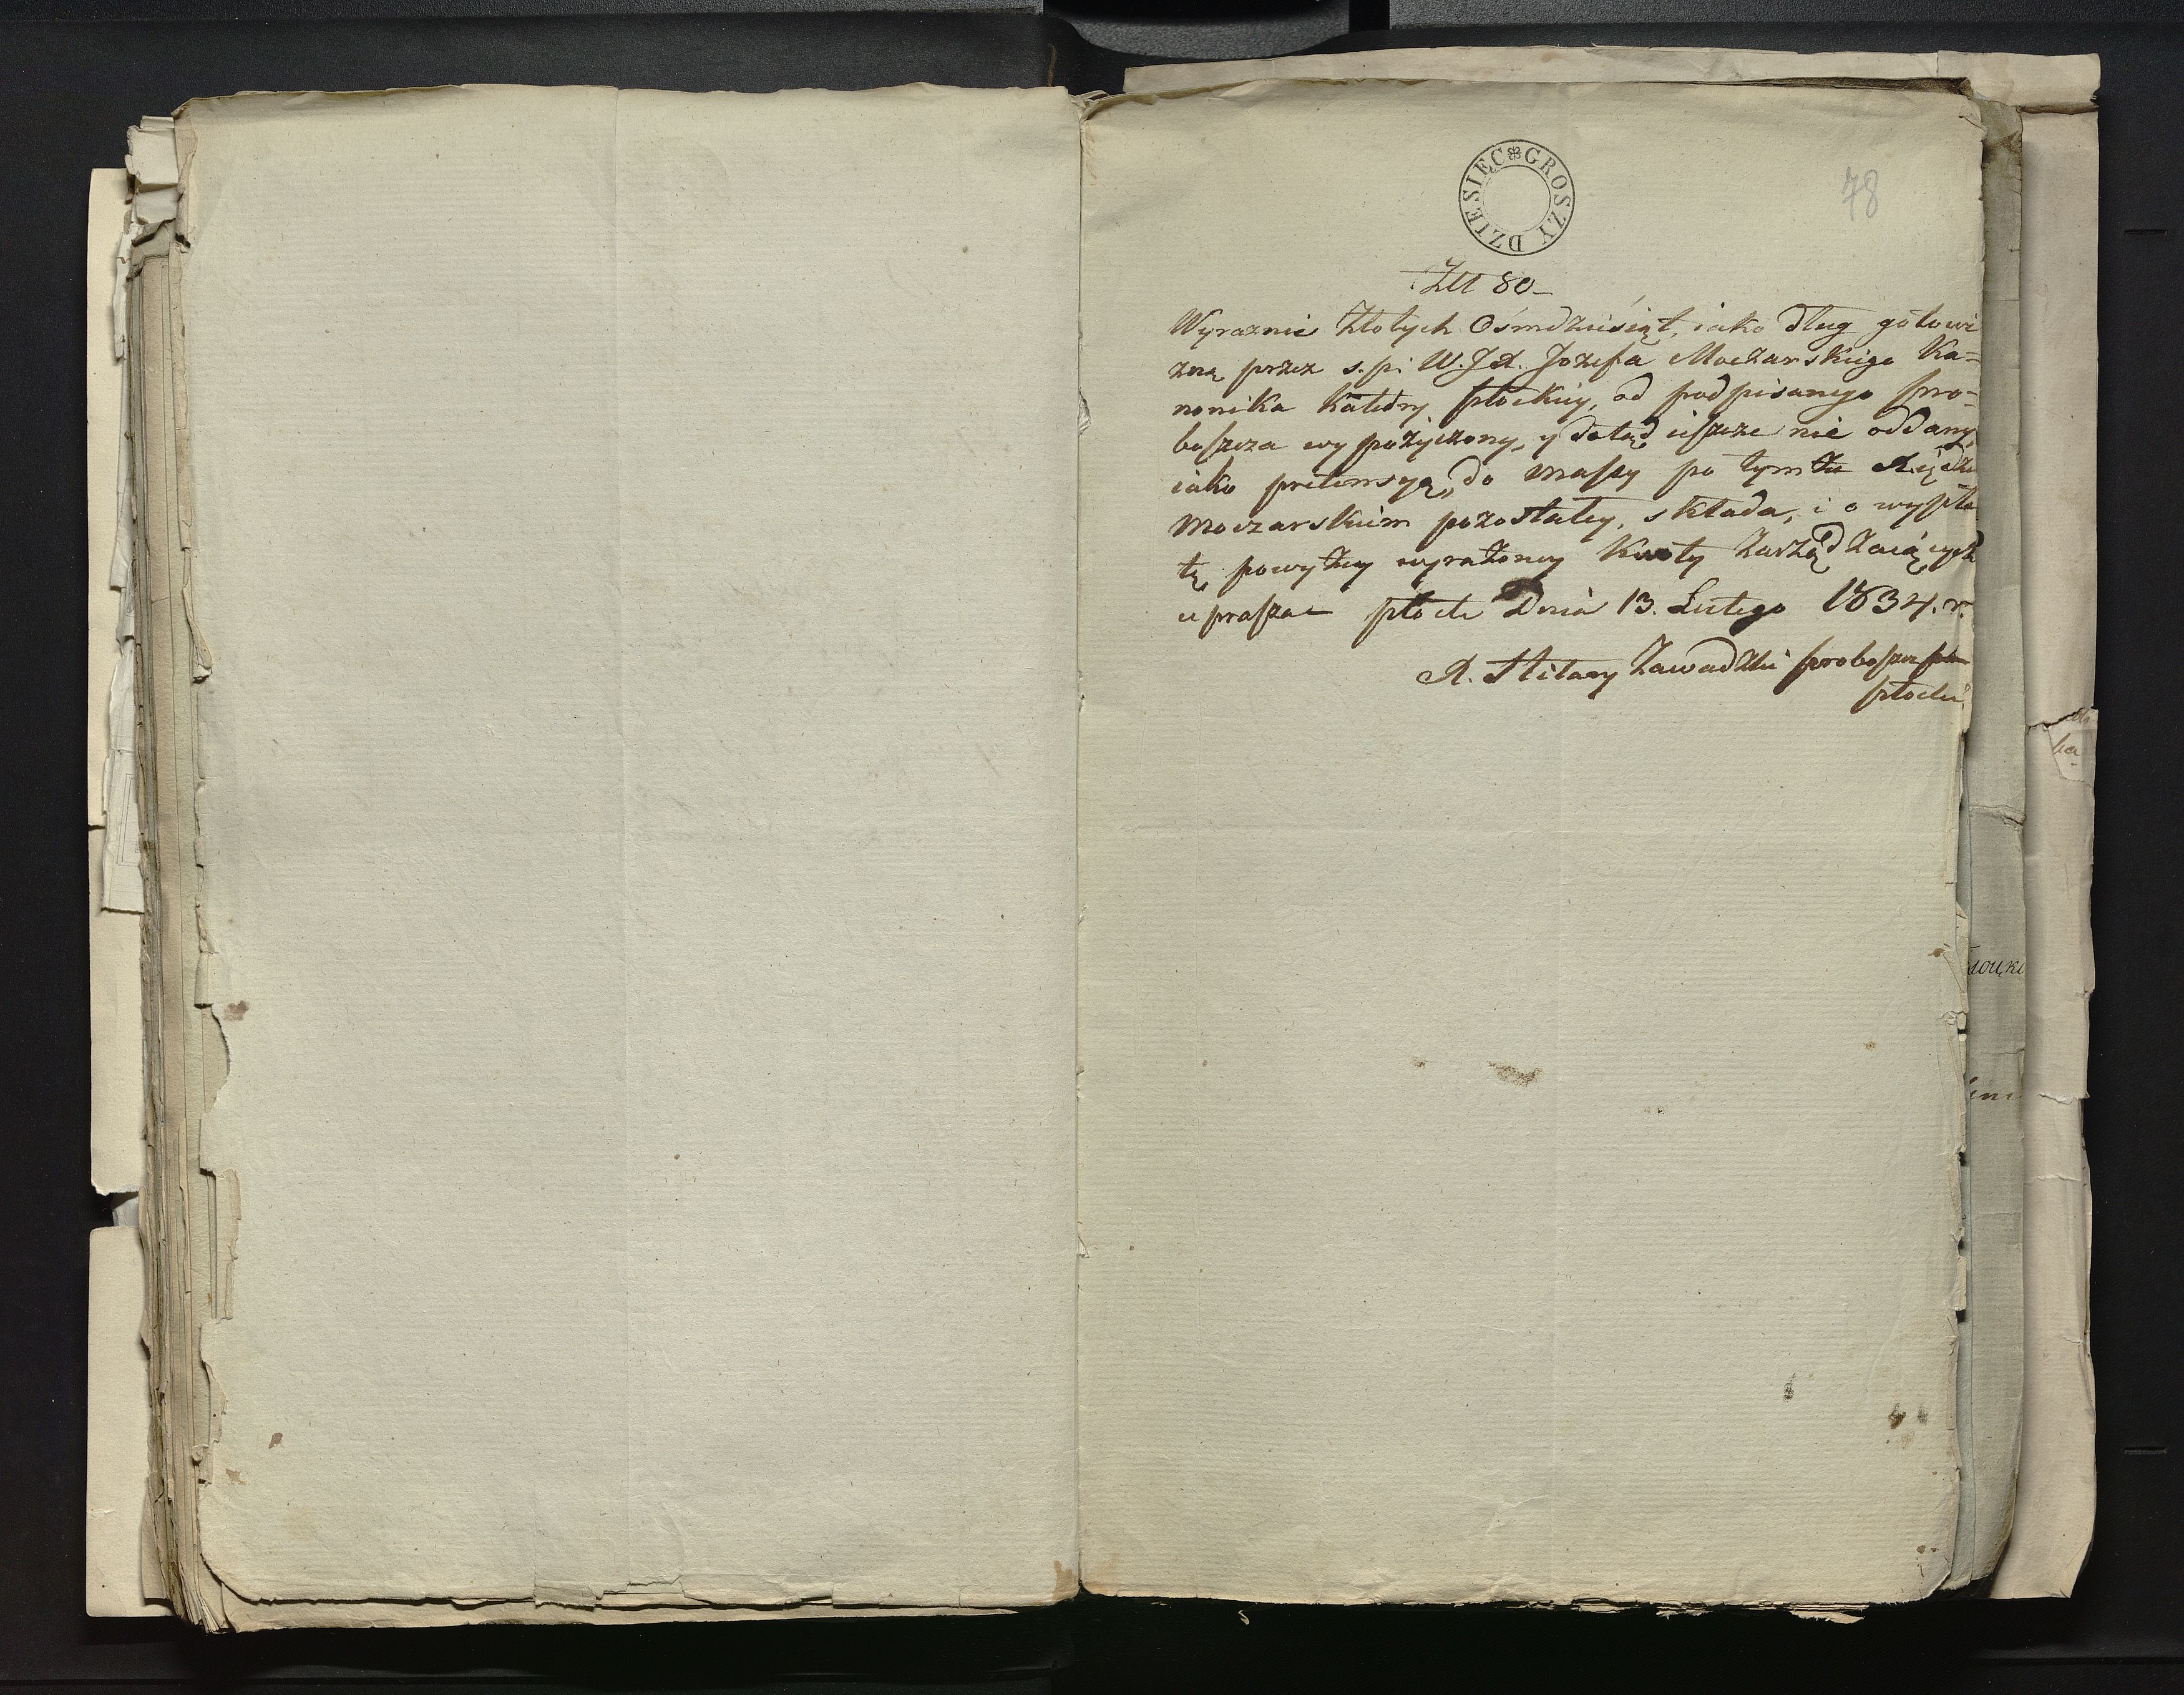 DZIESIĘC GROSZY
78
Złł 80-
Wyraznie Złotych Ośmdziesiąt, iako dług gotowi
zną przez s. p. W. JX. Jozefa Moczarskiego Ka=
nonika Katedry płockiey, od podpisanego pro=
boszcza wypożyczony, y dotąd ieszcze nie oddany,
iako pretensyą, do massy po tymże Xiędzu
Moczarskim pozostałey, składa, i o wypła
tę powyżey wyrażoney Kwoty Zarządzaiących
uprasza - płock Dnia 13. Lutego 1834. r.
X. Hilary Zawadzki proboszcz
płocki
ka